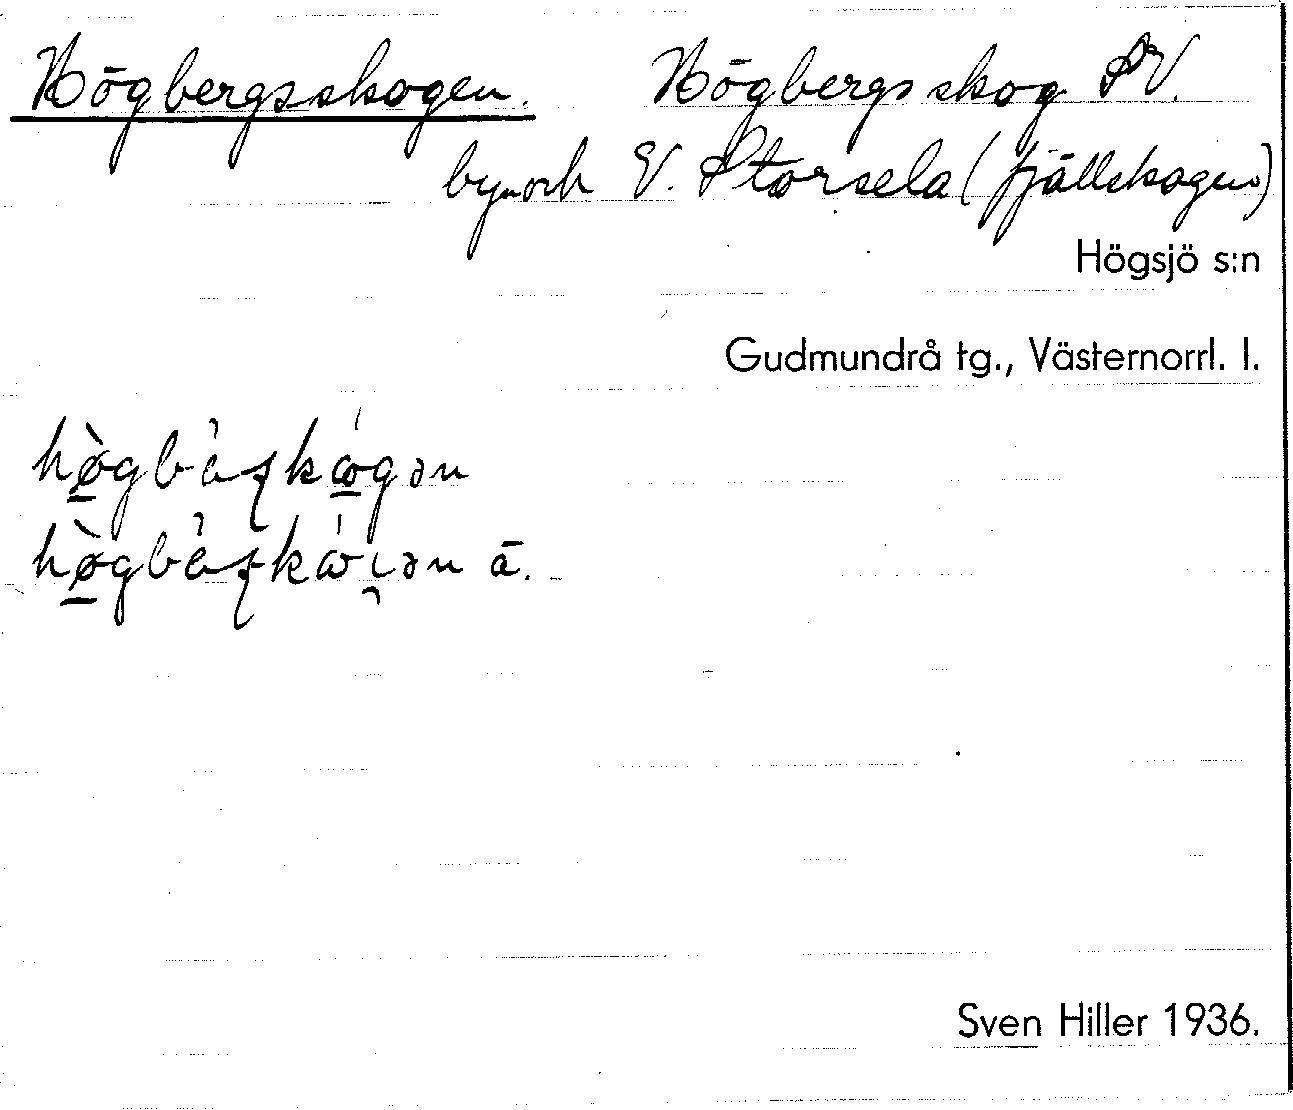 Högbergsskogen. Högbergsskog SV.
by och V. Storsela (fjällskogen)
Högsjö s:n
Gudmundrå tg., Västernorrl. l.
ä.
Sven Hiller 1936.